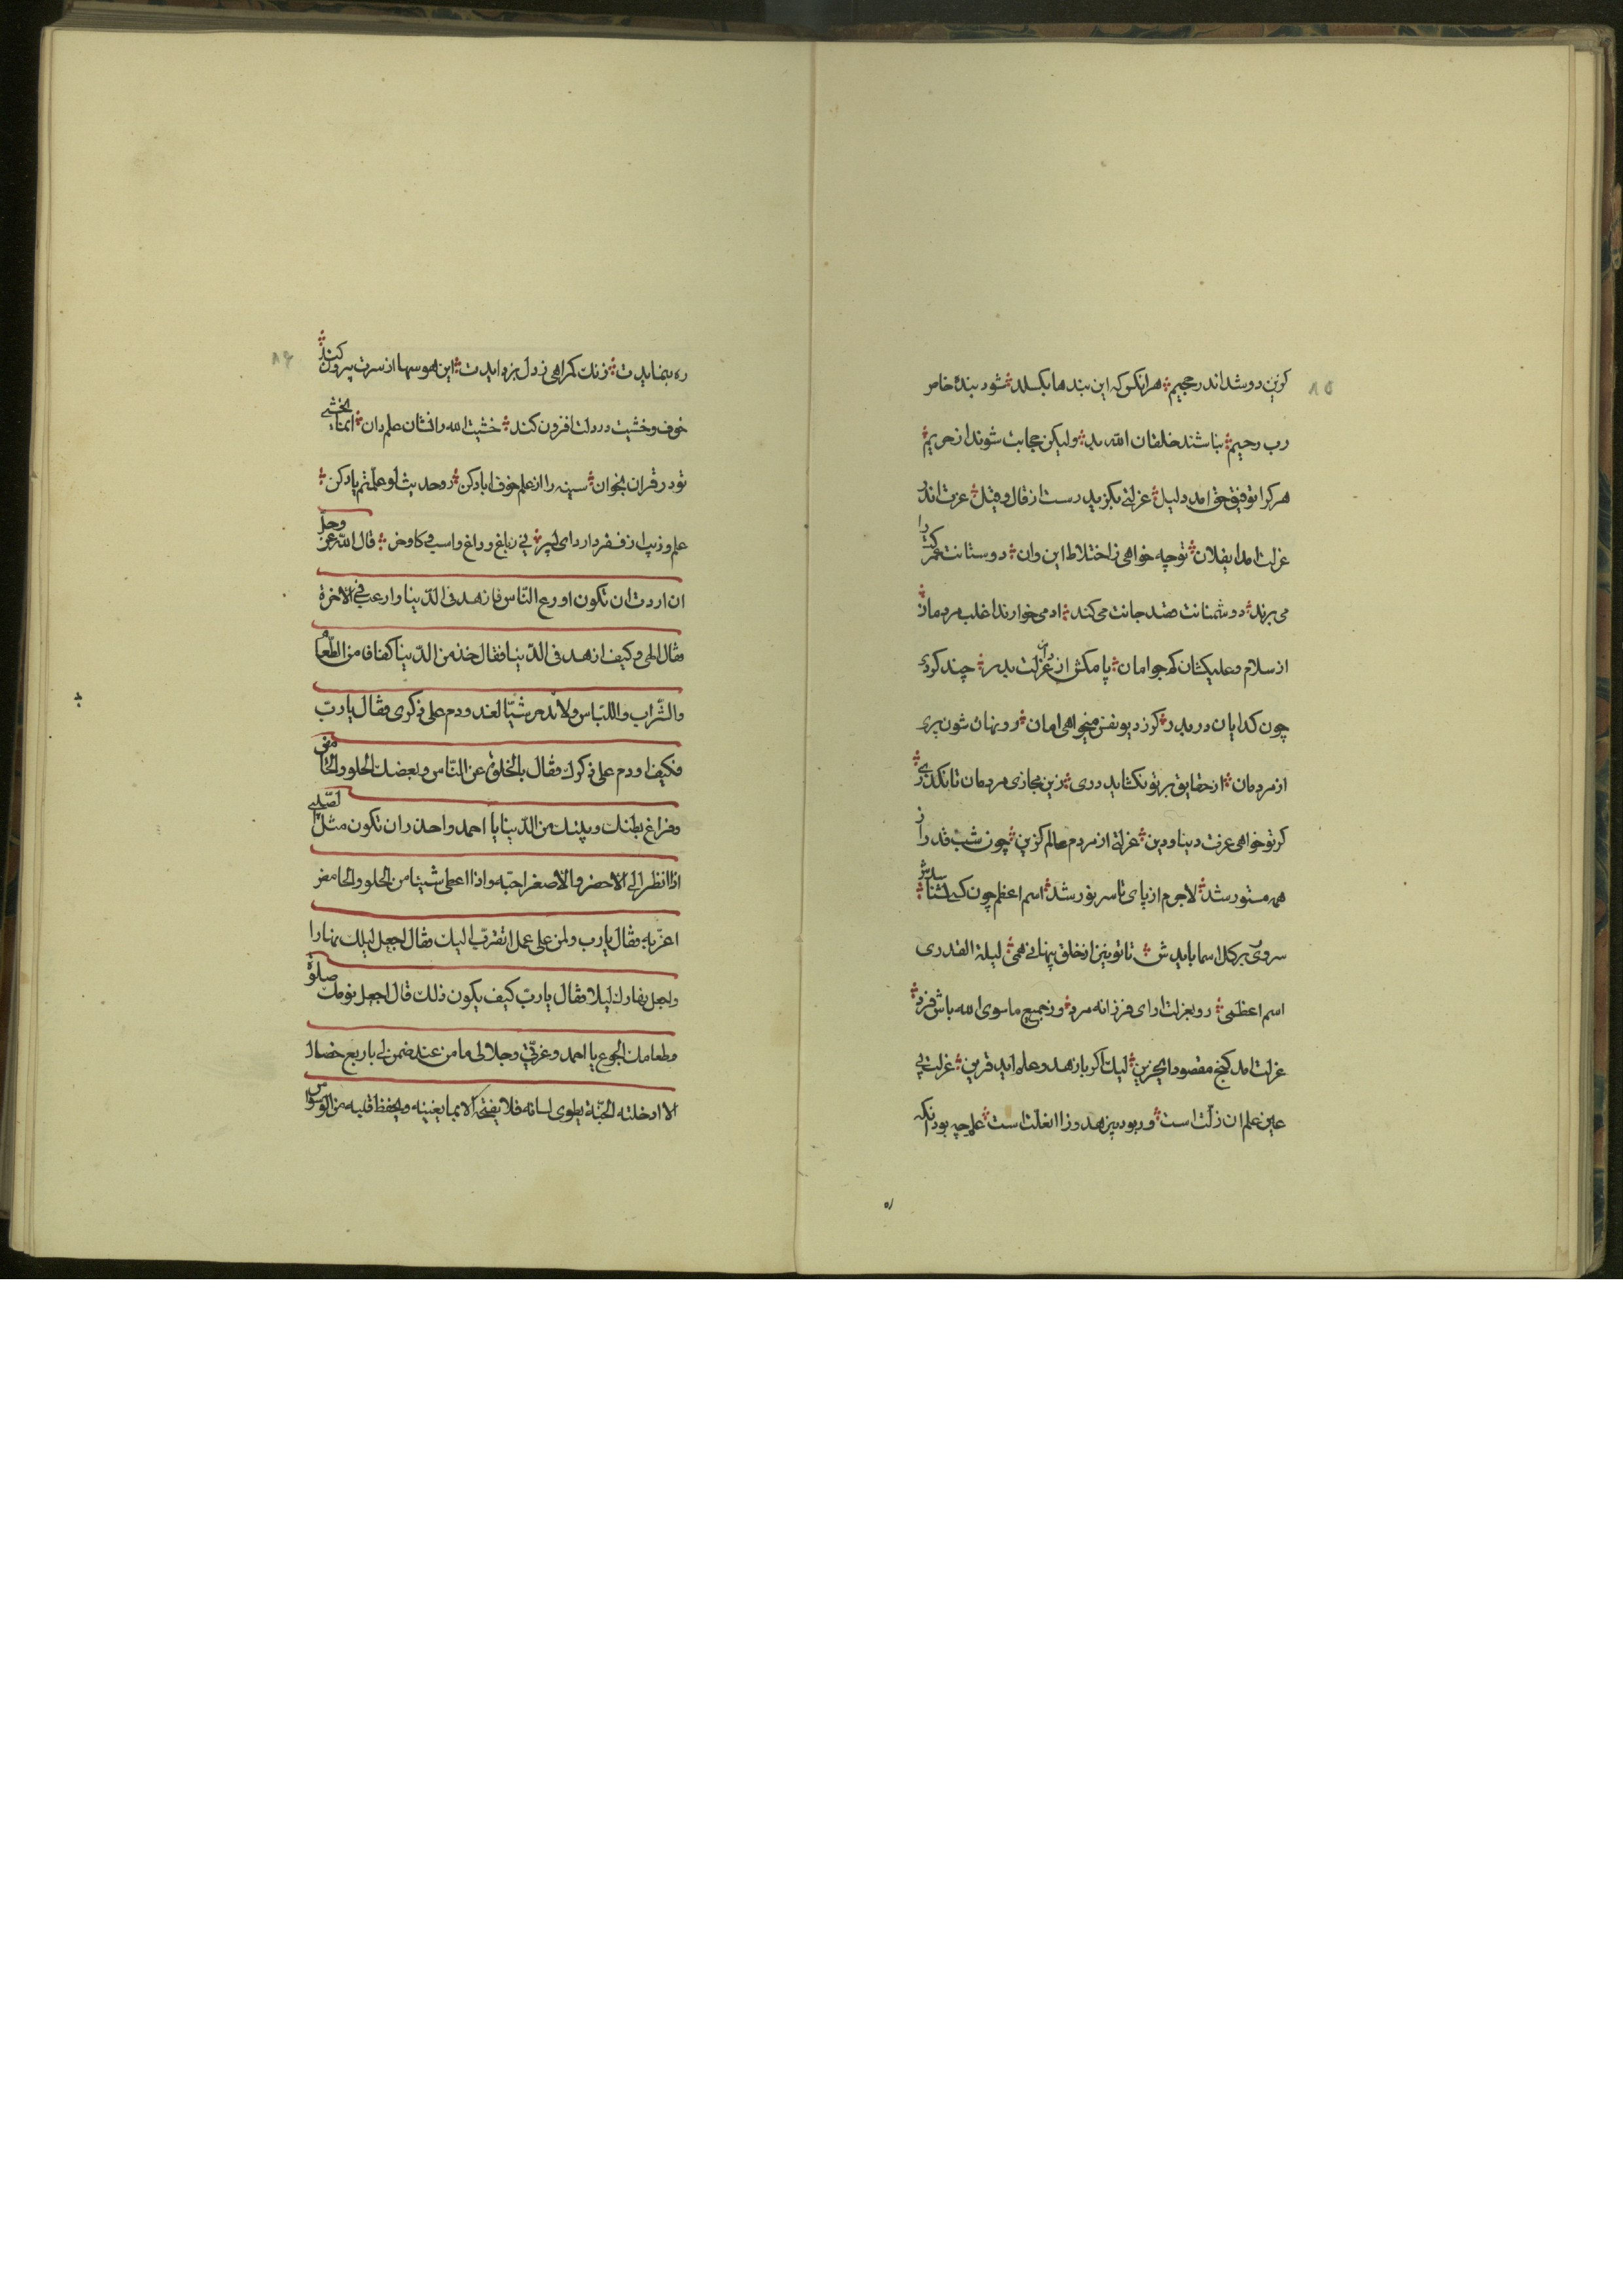 کوتین دوشد اندر جحیم هر انکس که این بندها بکسلد شود بندهٔ خاص
رب رحیم بنا شند خلقان الله بد ولیکن حجابت شوند از حریم
هرکرا توفیق حق امد دلیل عزلتی بکزید رست از قال و قیل عزت اندر
عزلت امد ایفلان تو چه خواهی ز اختلاط این وان دوستانت عمر کمت را
می برند دوشمنانت قصد جانت می کند ادمی خوارند اغلب مردمان
از سلام وعلیکشان کم جو امان پا مکش از دامن عزلت بدر چند کردی
چون کدایان دربدر کر ز دیو نفس میخواهی امان رو نهان شو چون پری
از مردمان از حقایق بر تو نکشاید دری زین مجازی مردمان تا نکذری
کر تو خواهی عزت دنیا و دین عزلتی از مردم عالم کزین چون شب قدر از
همه مستور شد لاجرم از پای تا سر نور شد اسم اعظم چون کسی نشناسدش
سروری بر کل اسما بایدش تا تو نیز از خلق پنهانی همی لیلة القدری
اسم اعظمی رو بعزلت ار ای فرزانه مرد وز جمیع ماسوی الله باش فرد
عزلت امد کنج مقصود ای حزین لیک اکر با زهد و علم اید قرین عزلت بی
عین علم ان زلت است ور بود بیزهد وزا انعلت است علم چه بود انکه
ره
ره بنمایدت زنک کمراهی ز دل بزدایدت این هوسها از سرت بیرون کند
خوف وخشیت در دلت افزون کند خشیت الله را نشان علم دان انما یخشی
تو در قران بخوان سینه را از علم خوف اباد کن رو حدیث لو علمتم یاد کن
علم وزیب از فقر دار ای پسر نی زباغ و راغ واسب و کاو وخر قال الله عز وجل
ان اردت ان تکون اورع الناس فازهد فی الدنیا وارعب فی الاخرة
فقال الهی وکیف ازهد فی الدنیا فقال خذ من الدنیا کفافا من الطعام
والشراب واللباس ولا تدخر شیئا لغد ودم علی ذکری فقال یا رب
فکیف ادوم علی ذکرک فقال بالخلوة عن الناس وبعضک الحلو والحامض
وفراغ بطنک وبیتک من الدنیا یا احمد واحذر ان تکون مثل الصبی
اذا نظر الی الاحضر والاصغر احبه واذا اعطی شیئا من الحلو والحامض
اغتر به فقال یا رب دلنی علی عمل اتقرب الیک فقال اجعل لیلک نهارا
واجعل نهارک لیلا فقال یا رب کیف یکون ذلک قال اجعل نومک صلوة
وطعامک الجوع یا احمد وعزتی وجلالی ما من عبد ضمن لی باربع خصال
الا ادخلته الجنة یطوی لسانه فلا یفتحه الا بما یعنیه ویحفظ قلبه من الوسواس